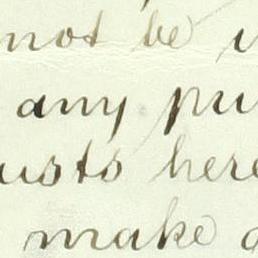 not be
any pu
usts here
make a